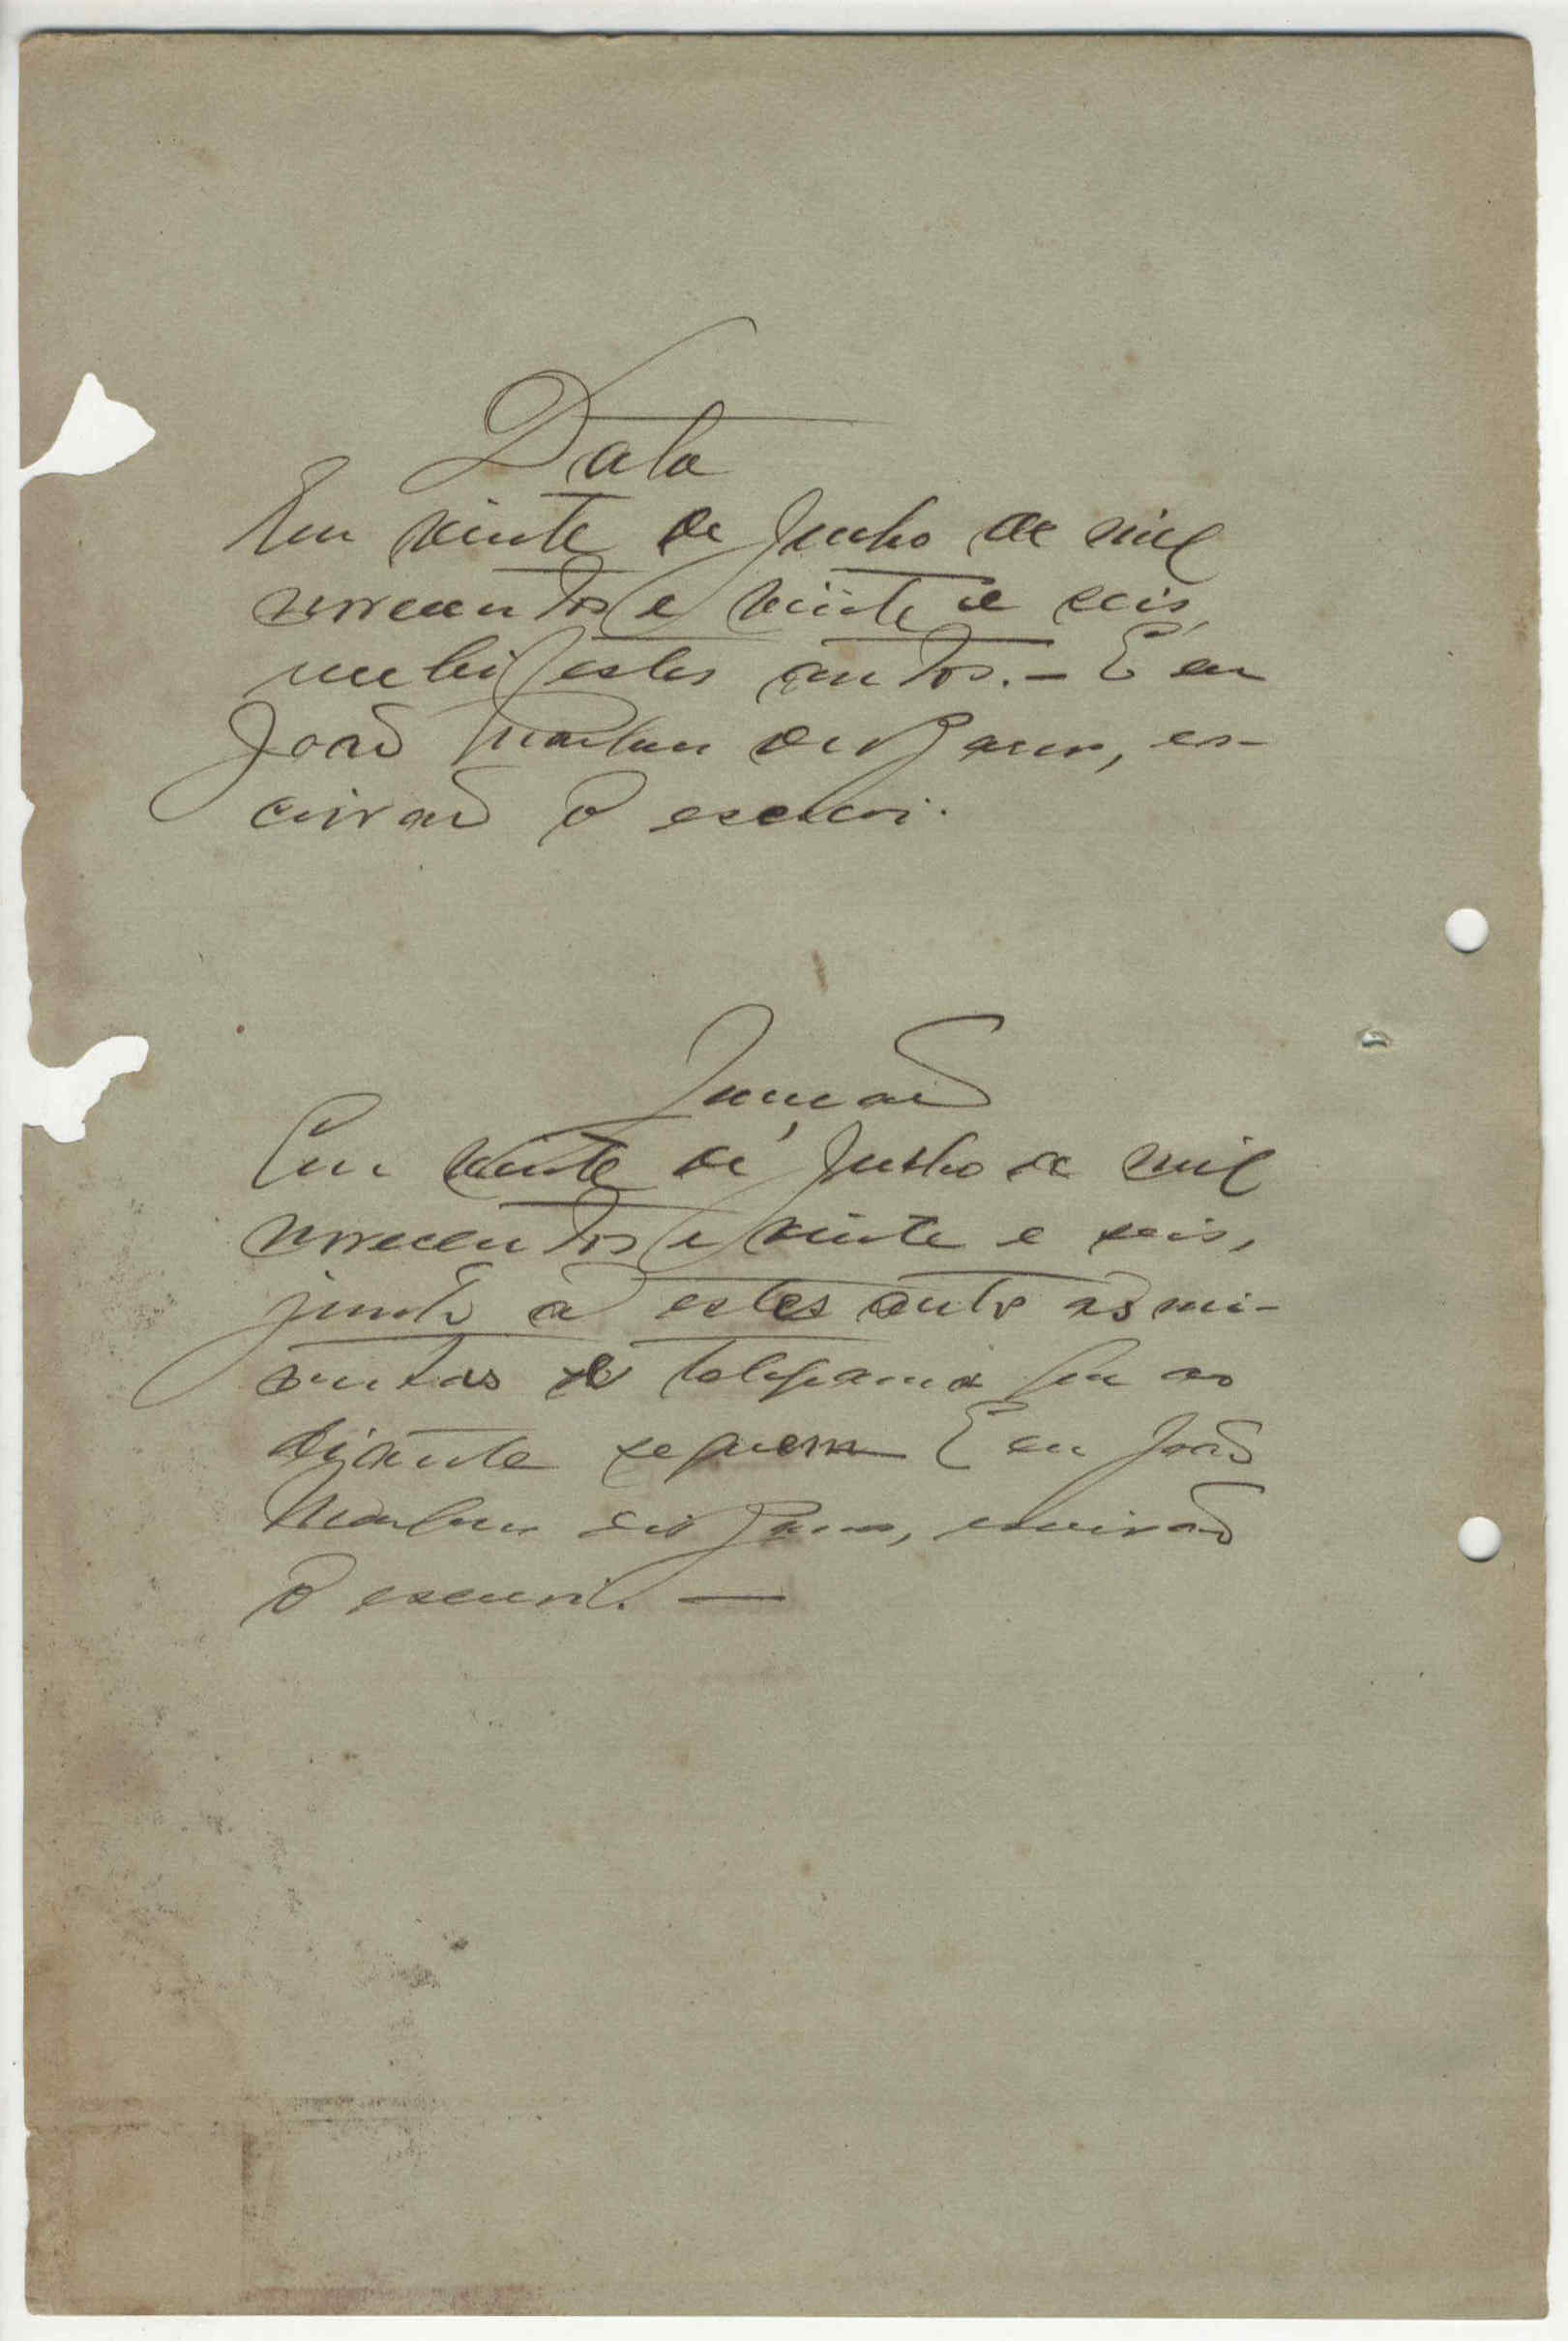 Data
Em vinte de Junho de mil
novecentos e vinte e seis,
recebi estes autos. – E eu
João de Barros, es-
crivão o escrevi.
Junção
Em vinte de Junho de mil
novecentos e vinte e seis,
junto a estes autos as mi-
nutas de telegramma que ao
diante seguem E eu João
escrivão
o escrevi. —